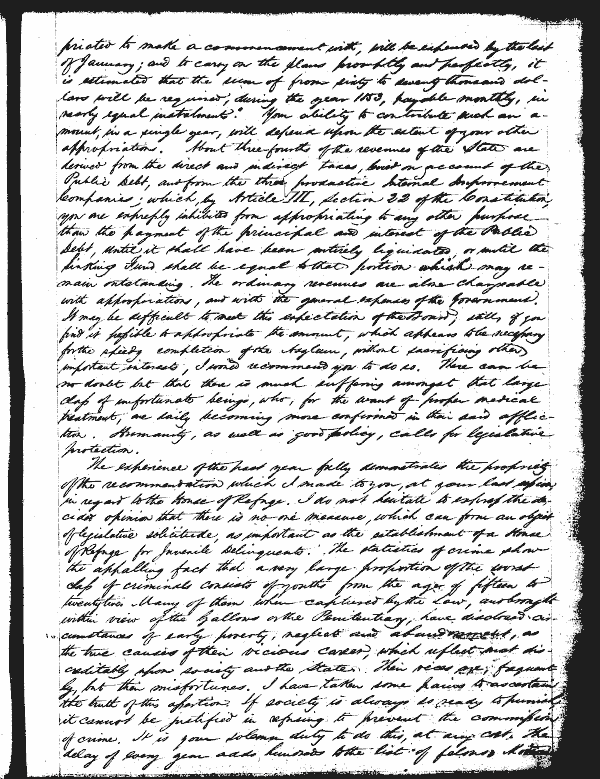 priated to make a commencement with, will be expended by the last
of January; and to carry on the plans promptly and perfectly, it
is estimated that the sum of from sixty to seventy thousand dol-
lars will be required, during the year 1853, payable monthly, in
nearly equal instalments." Your ability to contribute such an a-
mount, in a single year, will depend upon the extent of your other
appropriations. About three-fourths of the revenues of the State are
derived from the direct and indirect taxes, levied on account of the
Public Debt, and from the three productive Internal Improvement
Companies; which, by Article III, section 22 of the Constitution,
you are expressly inhibited from appropriating to any other purpose
than the payment of the principal and interest of the Public
Debt, until it shall have been entirely liquidated, or until the
Sinking Fund shall be equal to that portion which may re-
main outstanding. The ordinary revenues are alone chargeable
with appropriations, and with the general expenses of the Government.
It may be difficult to meet this expectation of the Board, still, if you
find it possible to appropriate the amount, which appears to be necessary
for the speedy completion of the Asylum, without sacrificing other
important interests, I would recommend you to do so. There can be
no doubt but that there is much suffering amongst that large
class of unfortunate beings, who, for the want of proper medical
treatment, are daily becoming more confirmed in their sad afflic-
tion. Humanity, as well as good policy, calls for legislative
protection.
The experience of the past year fully demonstrates the propriety
of the recommendation which I made to you, at your last session,
in regard to the House of Refuge. I do not hesitate to express the de-
cided opinion that there is no one measure, which can form an object
of legislative solicitude, as important as the establishment of a House
of Refuge for Juvenile Delinquents. The statistics of crime show
the appalling fact that a very large proportion of the worst
class of criminals consists of youths from the age of fifteen to
twenty two. Many of them when captured by the law, and brought
within view of the Gallows or the Penitentiary, have disclosed cir-
cumstances of early poverty, neglect and as
the true causes of their vicious career, which reflect most dis-
creditably upon society and the State. Their vices are, frequent
ly, but their misfortunes. I have taken some pains to ascertain
the truth of this assertion. If society is always so ready to punish
it cannot be justified in refusing to prevent the commission
of crime. It is your solemn duty to do this, at any cost. The
delay of every year adds hundreds to the list of felons.